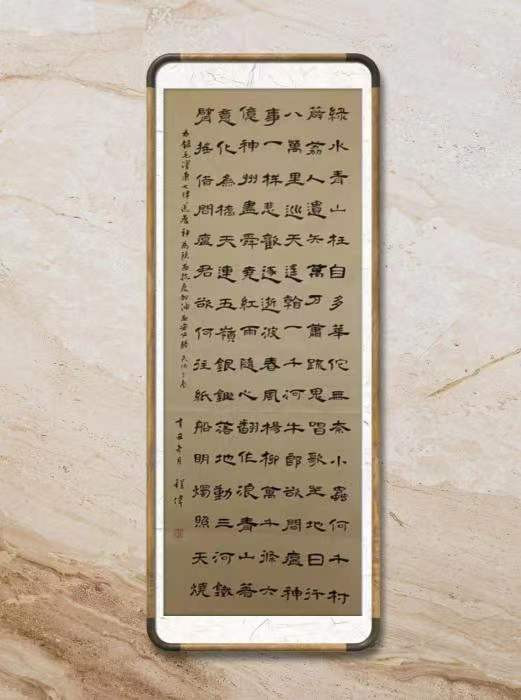 綠水青山枉自多華佗無奈小蟲何千村
薜荔人遺矢萬戶蕭疏鬼唱歌坐地日行
八萬里巡天遙看一千河牛郎欲問瘟神
事一樣悲歡逐逝波春風楊柳萬千條六
億神州盡舜堯紅雨隨心翻作浪青山著
意化為橋天連五嶺銀鋤落地動三河鐵
臂搖借問瘟君欲何往紙船明燭照天燒
毛澤東七律送瘟神為抗疫加油
辛丑冬月 程偉